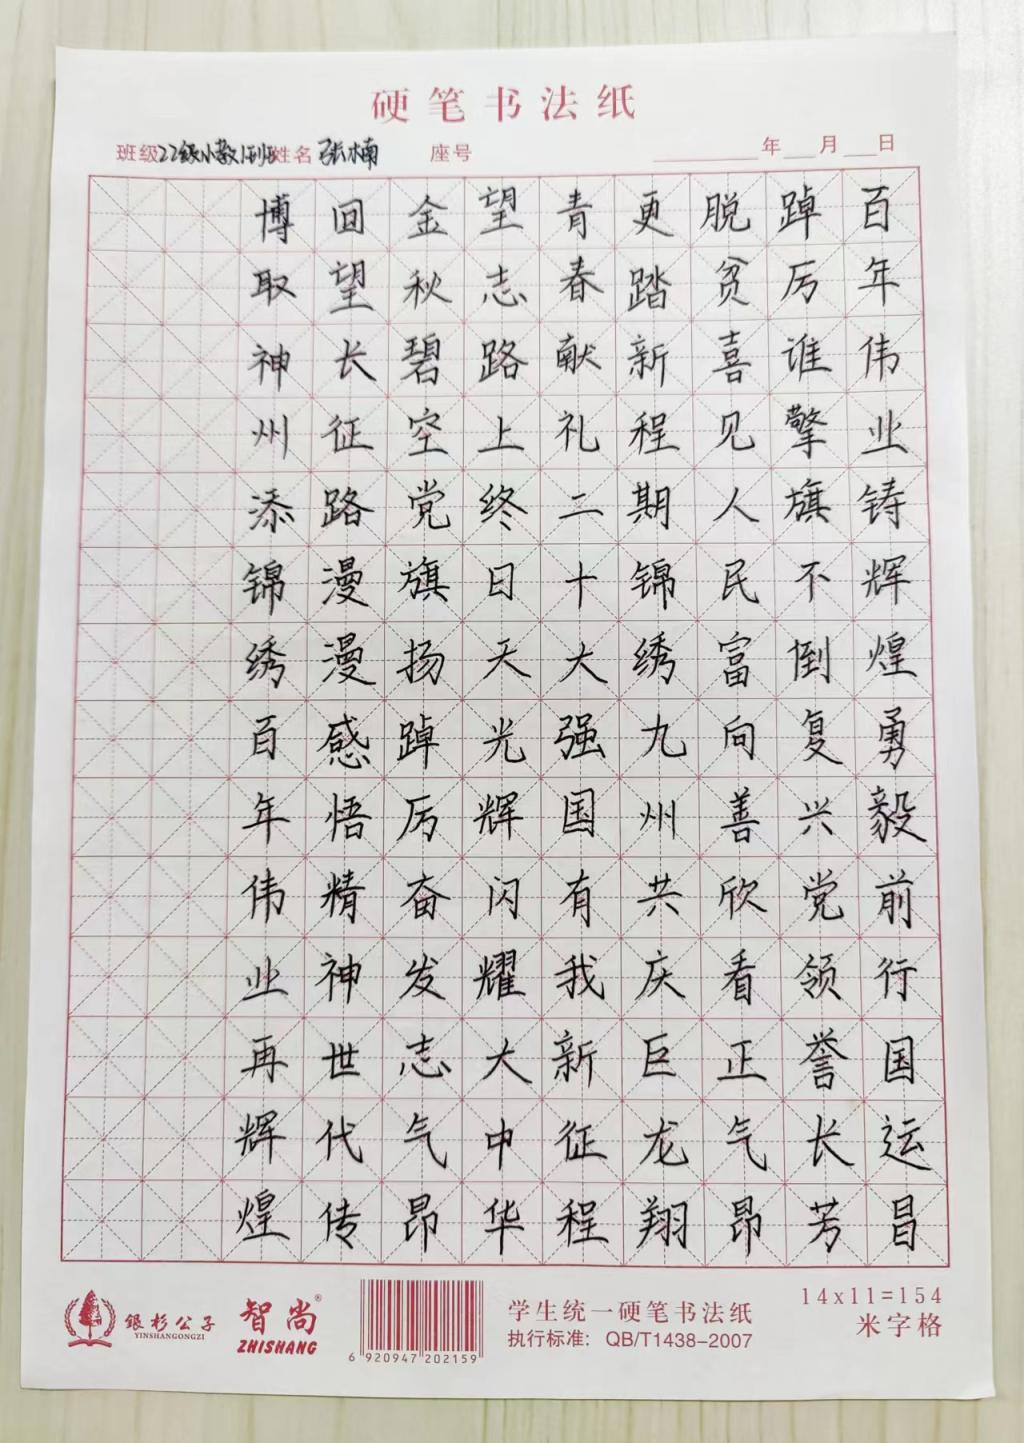 硬笔书法纸
班级22级小教1班姓名张楠 座号 年 月 日
百年伟业铸辉煌勇毅前行国运昌
踔厉谁擎旗不倒复兴党领誉长芳
脱贫喜见人民富向善欣看正气昂
更踏新程期锦绣九州共庆巨龙翔
青春献礼二十大强国有我新征程
望志路上终日天光辉闪耀大中华
金秋碧空党旗扬踔厉奋发志气昂
回望长征路漫漫感悟精神世代传
博取神州添锦绣百年伟业再辉煌
银杉公子
YINSHANGONGZI
智尚®
ZHISHANG
6 920947 202159
学生统一硬笔书法纸
执行标准：QB/T1438-2007
14x11=154
米字格